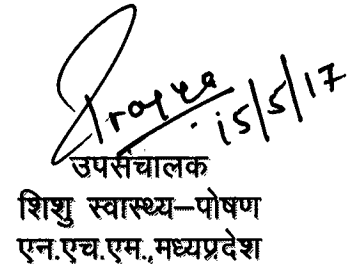 Pragya
15/5/17
उपसंचालक
शिशु स्वास्थ्य–पोषण
एन.एच.एम.,मध्यप्रदेश